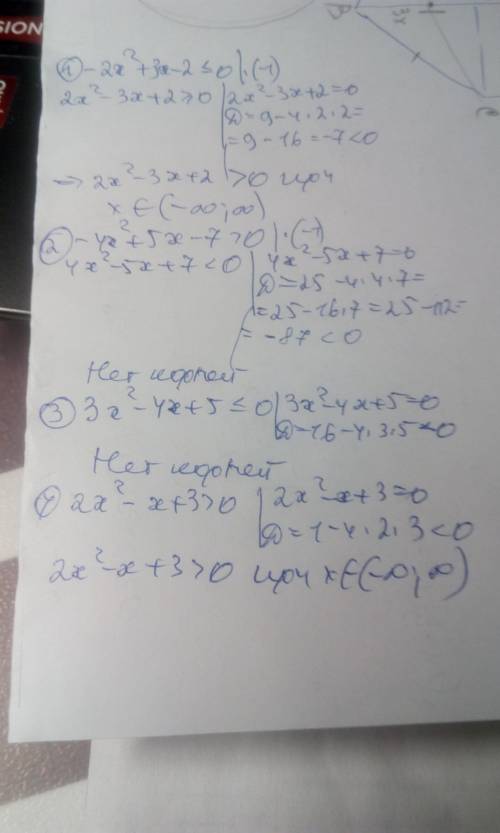 SION
① -2x²+3x-2≤0 |·(-1)
2x²-3x+2≥0 | 2x²-3x+2=0
D=9-4·2·2=
=9-16=-7<0
→ 2x²-3x+2>0 при
x∈(-∞;∞)
② -4x²+5x-7>0 |·(-1)
4x²-5x+7<0 | 4x²-5x+7=0
D=25-4·4·7=
=25-16·7=25-112=
=-87<0
Нет корней
③ 3x²-4x+5≤0 | 3x²-4x+5=0
D=16-4·3·5<0
Нет корней
④ 2x²-x+3>0 | 2x²-x+3=0
D=1-4·2·3<0
2x²-x+3>0 при x∈(-∞;∞)